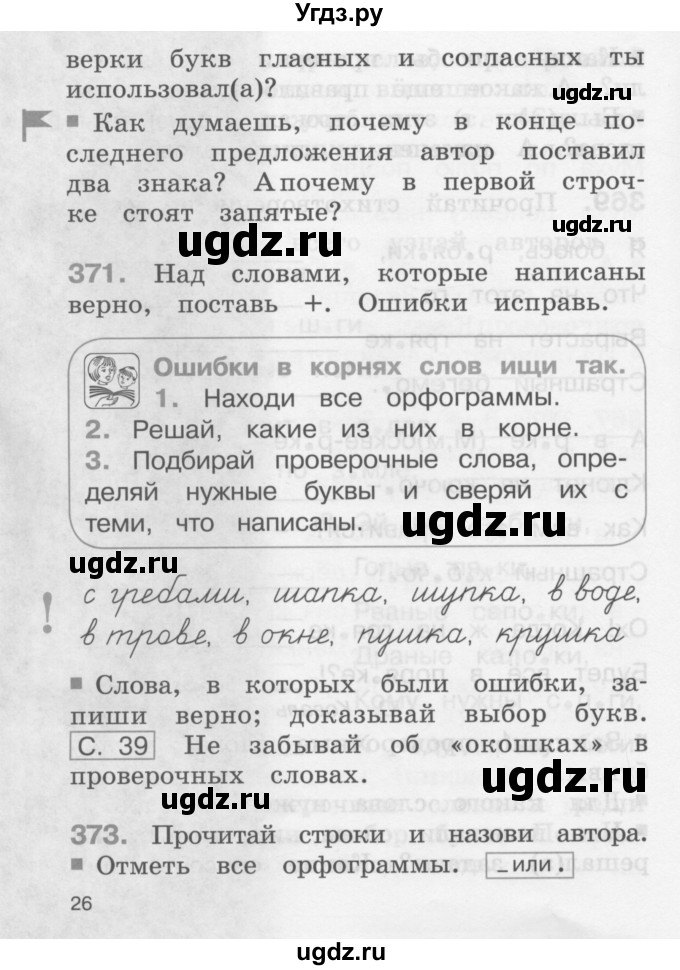 Угдз.ру
верки букв гласных и согласных ты
использовал(а)?
ugdz.ru
Как думаешь, почему в конце по-
следнего предложения автор поставил
два знака? А почему в первой строч-
ке стоят запятые?
ugdz.ru
ugdz.ru
371. Над словами, которые написаны
верно, поставь +. Ошибки исправь.
Ошибки в корнях слов ищи так.
1. Находи все орфограммы.
2. Решай, какие из них в корне.
3. Подбирай проверочные слова, опре-
деляй нужные буквы и сверяй их с
теми, что написаны.
ugdz.ru
ugdz.ru
! с гребами, шапка, шупка, в воде,
в трове, в окне, пушка, крушка
Слова, в которых были ошибки, за-
пиши верно; доказывай выбор букв.
С. 39 Не забывай об «окошках» в
проверочных словах.
ugdz.ru
ugdz.ru
373. Прочитай строки и назови автора.
Отметь все орфограммы. _ или .
26
ugdz.ru
ugdz.ru